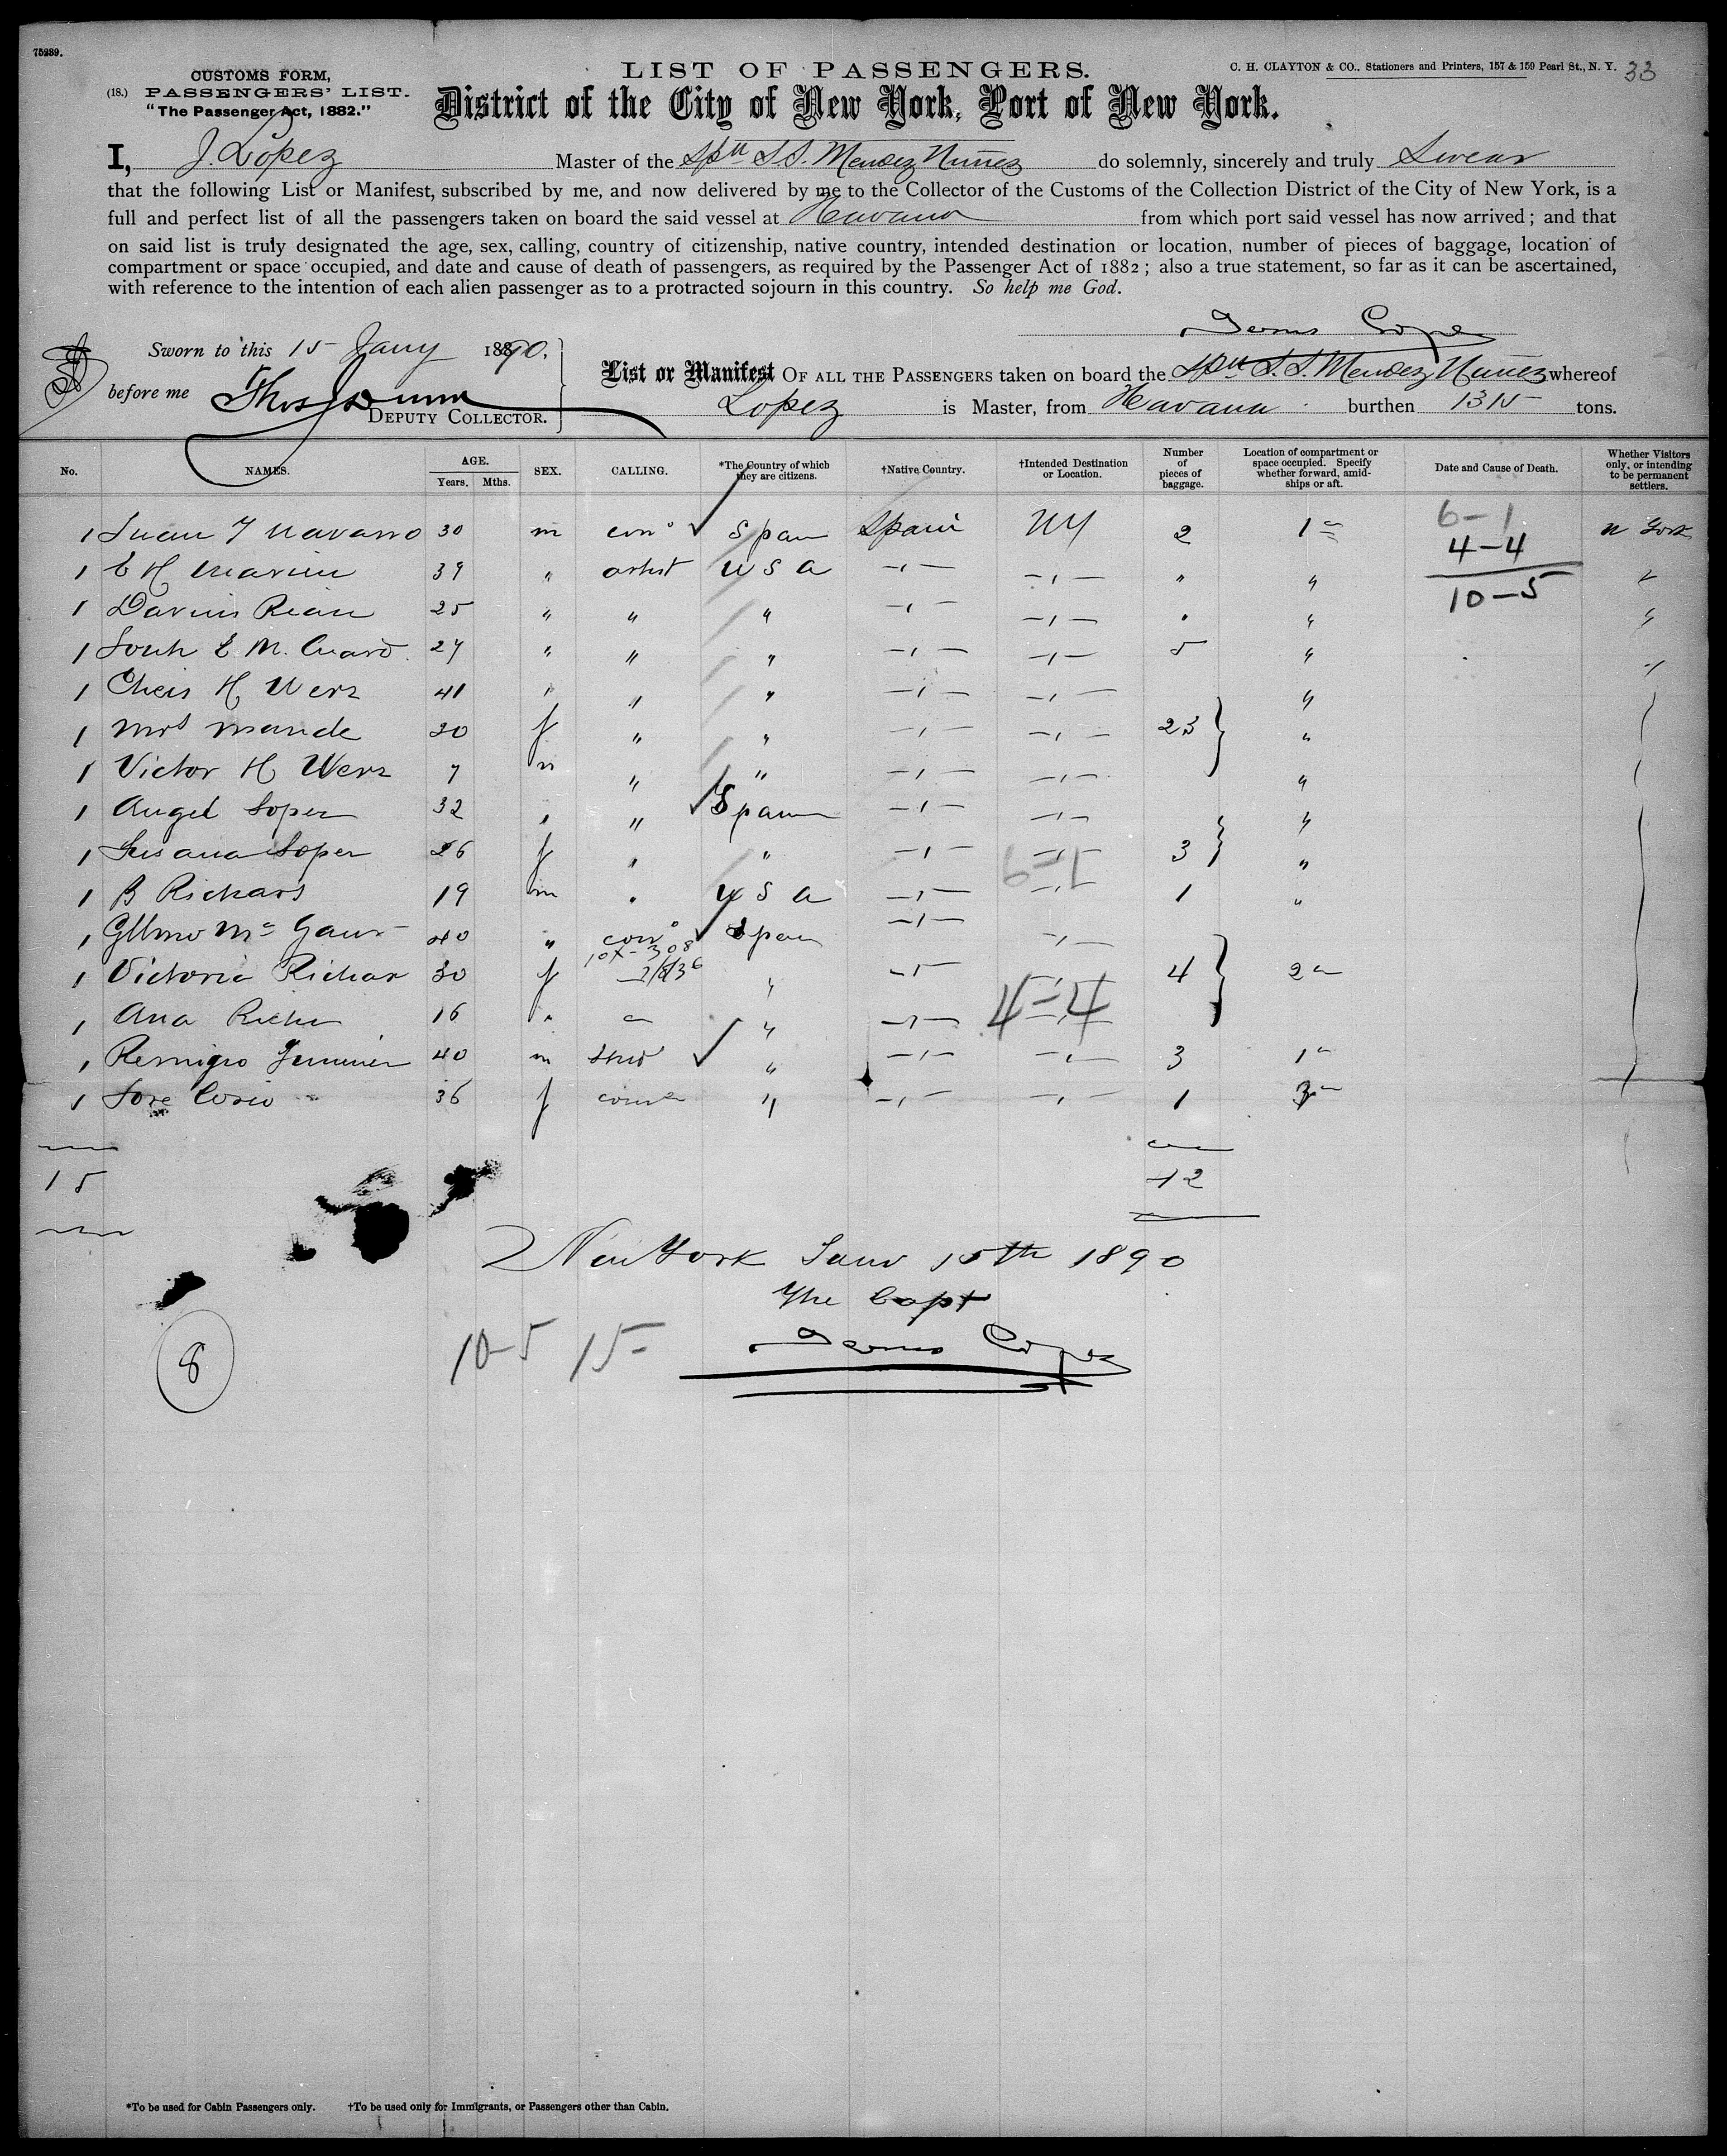 75239.
CUSTOMS FORM,
(18.) PASSENGERS' LIST.
"The Passenger Act, 1882."
LIST OF PASSENGERS.
C. H. CLAYTON & CO., Stationers and Printers, 157 & 159 Pearl St., N. Y. 33
District of the City of New York, Port of New York.
I, J. Lopez Master of the Spn S.S. Mendez Nuñez do solemnly, sincerely and truly Swear
that the following List or Manifest, subscribed by me, and now delivered by me to the Collector of the Customs of the Collection District of the City of New York, is a
full and perfect list of all the passengers taken on board the said vessel at Havana from which port said vessel has now arrived; and that
on said list is truly designated the age, sex, calling, country of citizenship, native country, intended destination or location, number of pieces of baggage, location of
compartment or space occupied, and date and cause of death of passengers, as required by the Passenger Act of 1882; also a true statement, so far as it can be ascertained,
with reference to the intention of each alien passenger as to a protracted sojourn in this country. So help me God.
Sworn to this 15 Jany 1890,
before me Thos J Dunn
DEPUTY COLLECTOR.
List or Manifest OF ALL THE PASSENGERS taken on board the Spn S.S. Mendez Nuñez whereof
Lopez is Master, from Havana burthen 1315 tons.
No. NAMES. AGE. Years. Mths. SEX. CALLING. *The Country of which they are citizens. †Native Country. †Intended Destination or Location. Number of pieces of baggage. Location of compartment or space occupied. Specify whether forward, amidships or aft. Date and Cause of Death. Whether Visitors only, or intending to be permanent settlers.
1 Juan F Navarro 30 m Spain Spain NY 2 1a 6-1 N York
1 E H 39 " artist U S A -,- -,- " " 4-4
1 25 " " " -,- -,- " 10-5 "
1 E M. 27 " " " -,- -,- 5 "
1 H Werz 41 " " " -,- -,- "
1 Mrs Maude 30 f " " -,- -,- 23 "
1 Victor H Werz 7 m " " -,- -,- "
1 Angel Lopez 32 " " Spain -,- -,- "
1 Susana Lopez 26 f " " -,- -,- 3 "
1 B Richars 19 m " U S A -,- -,- 1 "
1 Mc 40 " Spain -,- -,-
1 Victoria Richar 30 f " -,- 4 2a
1 Ana 16 " " -,- 4-4
1 Remigio 40 m " -,- -,- 3 1a
1 36 f " -,- -,- 1 3a
15
12
New York 15th 1890
The Capt
10-5 15-
8
*To be used for Cabin Passengers only. †To be used only for Immigrants, or Passengers other than Cabin.